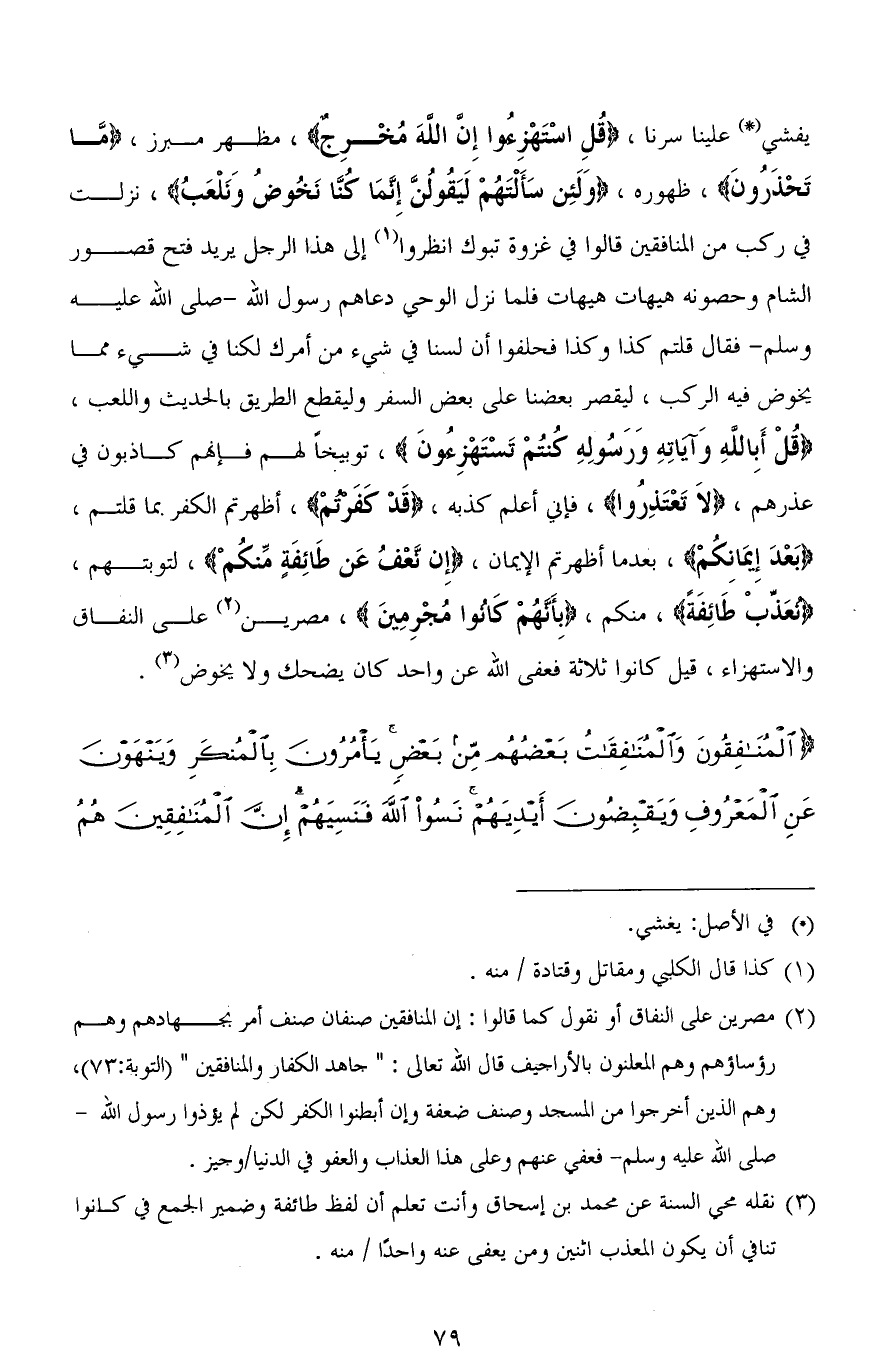 يفشي(*) علينا سرنا ، ﴿قُلِ اسْتَهْزِءُوا إِنَّ اللَّهَ مُخْرِجٌ﴾ ، مظهر مبرز ، ﴿مَّا
تَحْذَرُونَ﴾ ، ظهوره ، ﴿وَلَئِن سَأَلْتَهُمْ لَيَقُولُنَّ إِنَّمَا كُنَّا نَخُوضُ وَنَلْعَبُ﴾ ، نزلت
في ركب من المنافقين قالوا في غزوة تبوك انظروا(١) إلى هذا الرجل يريد فتح قصور
الشام وحصونه هيهات هيهات فلما نزل الوحي دعاهم رسول الله -صلى الله عليه
وسلم- فقال قلتم كذا وكذا فحلفوا أن لسنا في شيء من أمرك لكنا في شيء مما
يخوض فيه الركب ، ليقصر بعضنا على بعض السفر وليقطع الطريق بالحديث واللعب ،
﴿قُلْ أَبِاللَّهِ وَآيَاتِهِ وَرَسُولِهِ كُنتُمْ تَسْتَهْزِءُونَ ﴾ ، توبيخاً لهم فإنهم كاذبون في
عذرهم ، ﴿لاَ تَعْتَذِرُوا﴾ ، فإني أعلم كذبه ، ﴿قَدْ كَفَرْتُمْ﴾ ، أظهرتم الكفر بما قلتم ،
﴿بَعْدَ إِيمَانِكُمْ﴾ ، بعدما أظهرتم الإيمان ، ﴿إِن نَّعْفُ عَن طَائِفَةٍ مِّنكُمْ﴾ ، لتوبتهم ،
﴿نُعَذِّبْ طَائِفَةً﴾ ، منكم ، ﴿بِأَنَّهُمْ كَانُوا مُجْرِمِينَ ﴾ ، مصرين(٢) على النفاق
والاستهزاء ، قيل كانوا ثلاثة فعفى الله عن واحد كان يضحك ولا يخوض(٣) .
﴿ ٱلْمُنَـٰفِقُونَ وَٱلْمُنَـٰفِقَـٰتُ بَعْضُهُم مِّنۢ بَعْضٍ ۚ يَأْمُرُونَ بِٱلْمُنكَرِ وَيَنْهَوْنَ
عَنِ ٱلْمَعْرُوفِ وَيَقْبِضُونَ أَيْدِيَهُمْ ۚ نَسُوا۟ ٱللَّهَ فَنَسِيَهُمْ ۗ إِنَّ ٱلْمُنَـٰفِقِينَ هُمُ
(*) في الأصل: يغشي.
(١) كذا قال الكلبي ومقاتل وقتادة / منه .
(٢) مصرين على النفاق أو نقول كما قالوا : إن المنافقين صنفان صنف أمر بجهادهم وهم
رؤساؤهم وهم المعلنون بالأراجيف قال الله تعالى : " جاهد الكفار والمنافقين " (التوبة:٧٣)،
وهم الذين أخرجوا من المسجد وصنف ضعفة وإن أبطنوا الكفر لكن لم يؤذوا رسول الله -
صلى الله عليه وسلم- فعفي عنهم وعلى هذا العذاب والعفو في الدنيا/وجيز .
(٣) نقله محي السنة عن محمد بن إسحاق وأنت تعلم أن لفظ طائفة وضمير الجمع في كانوا
تنافي أن يكون المعذب اثنين ومن يعفى عنه واحدًا / منه .
٧٩